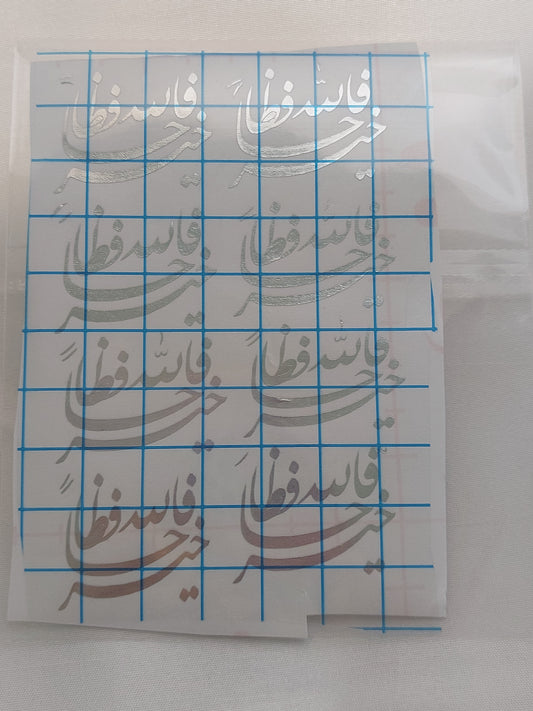 فالله خير حافظاً
فالله خير حافظاً
فالله خير حافظاً
فالله خير حافظاً
فالله خير حافظاً
فالله خير حافظاً
فالله خير حافظاً
فالله خير حافظاً